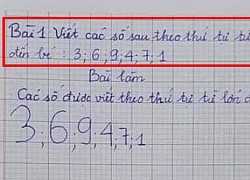 Bài 1 Viết các số sau theo thứ tự từ
đến bé : 3; 6; 9; 4; 7; 1
Bài làm
Các số được viết theo thứ tự từ lớn
3, 6, 9; 4, 7; 1